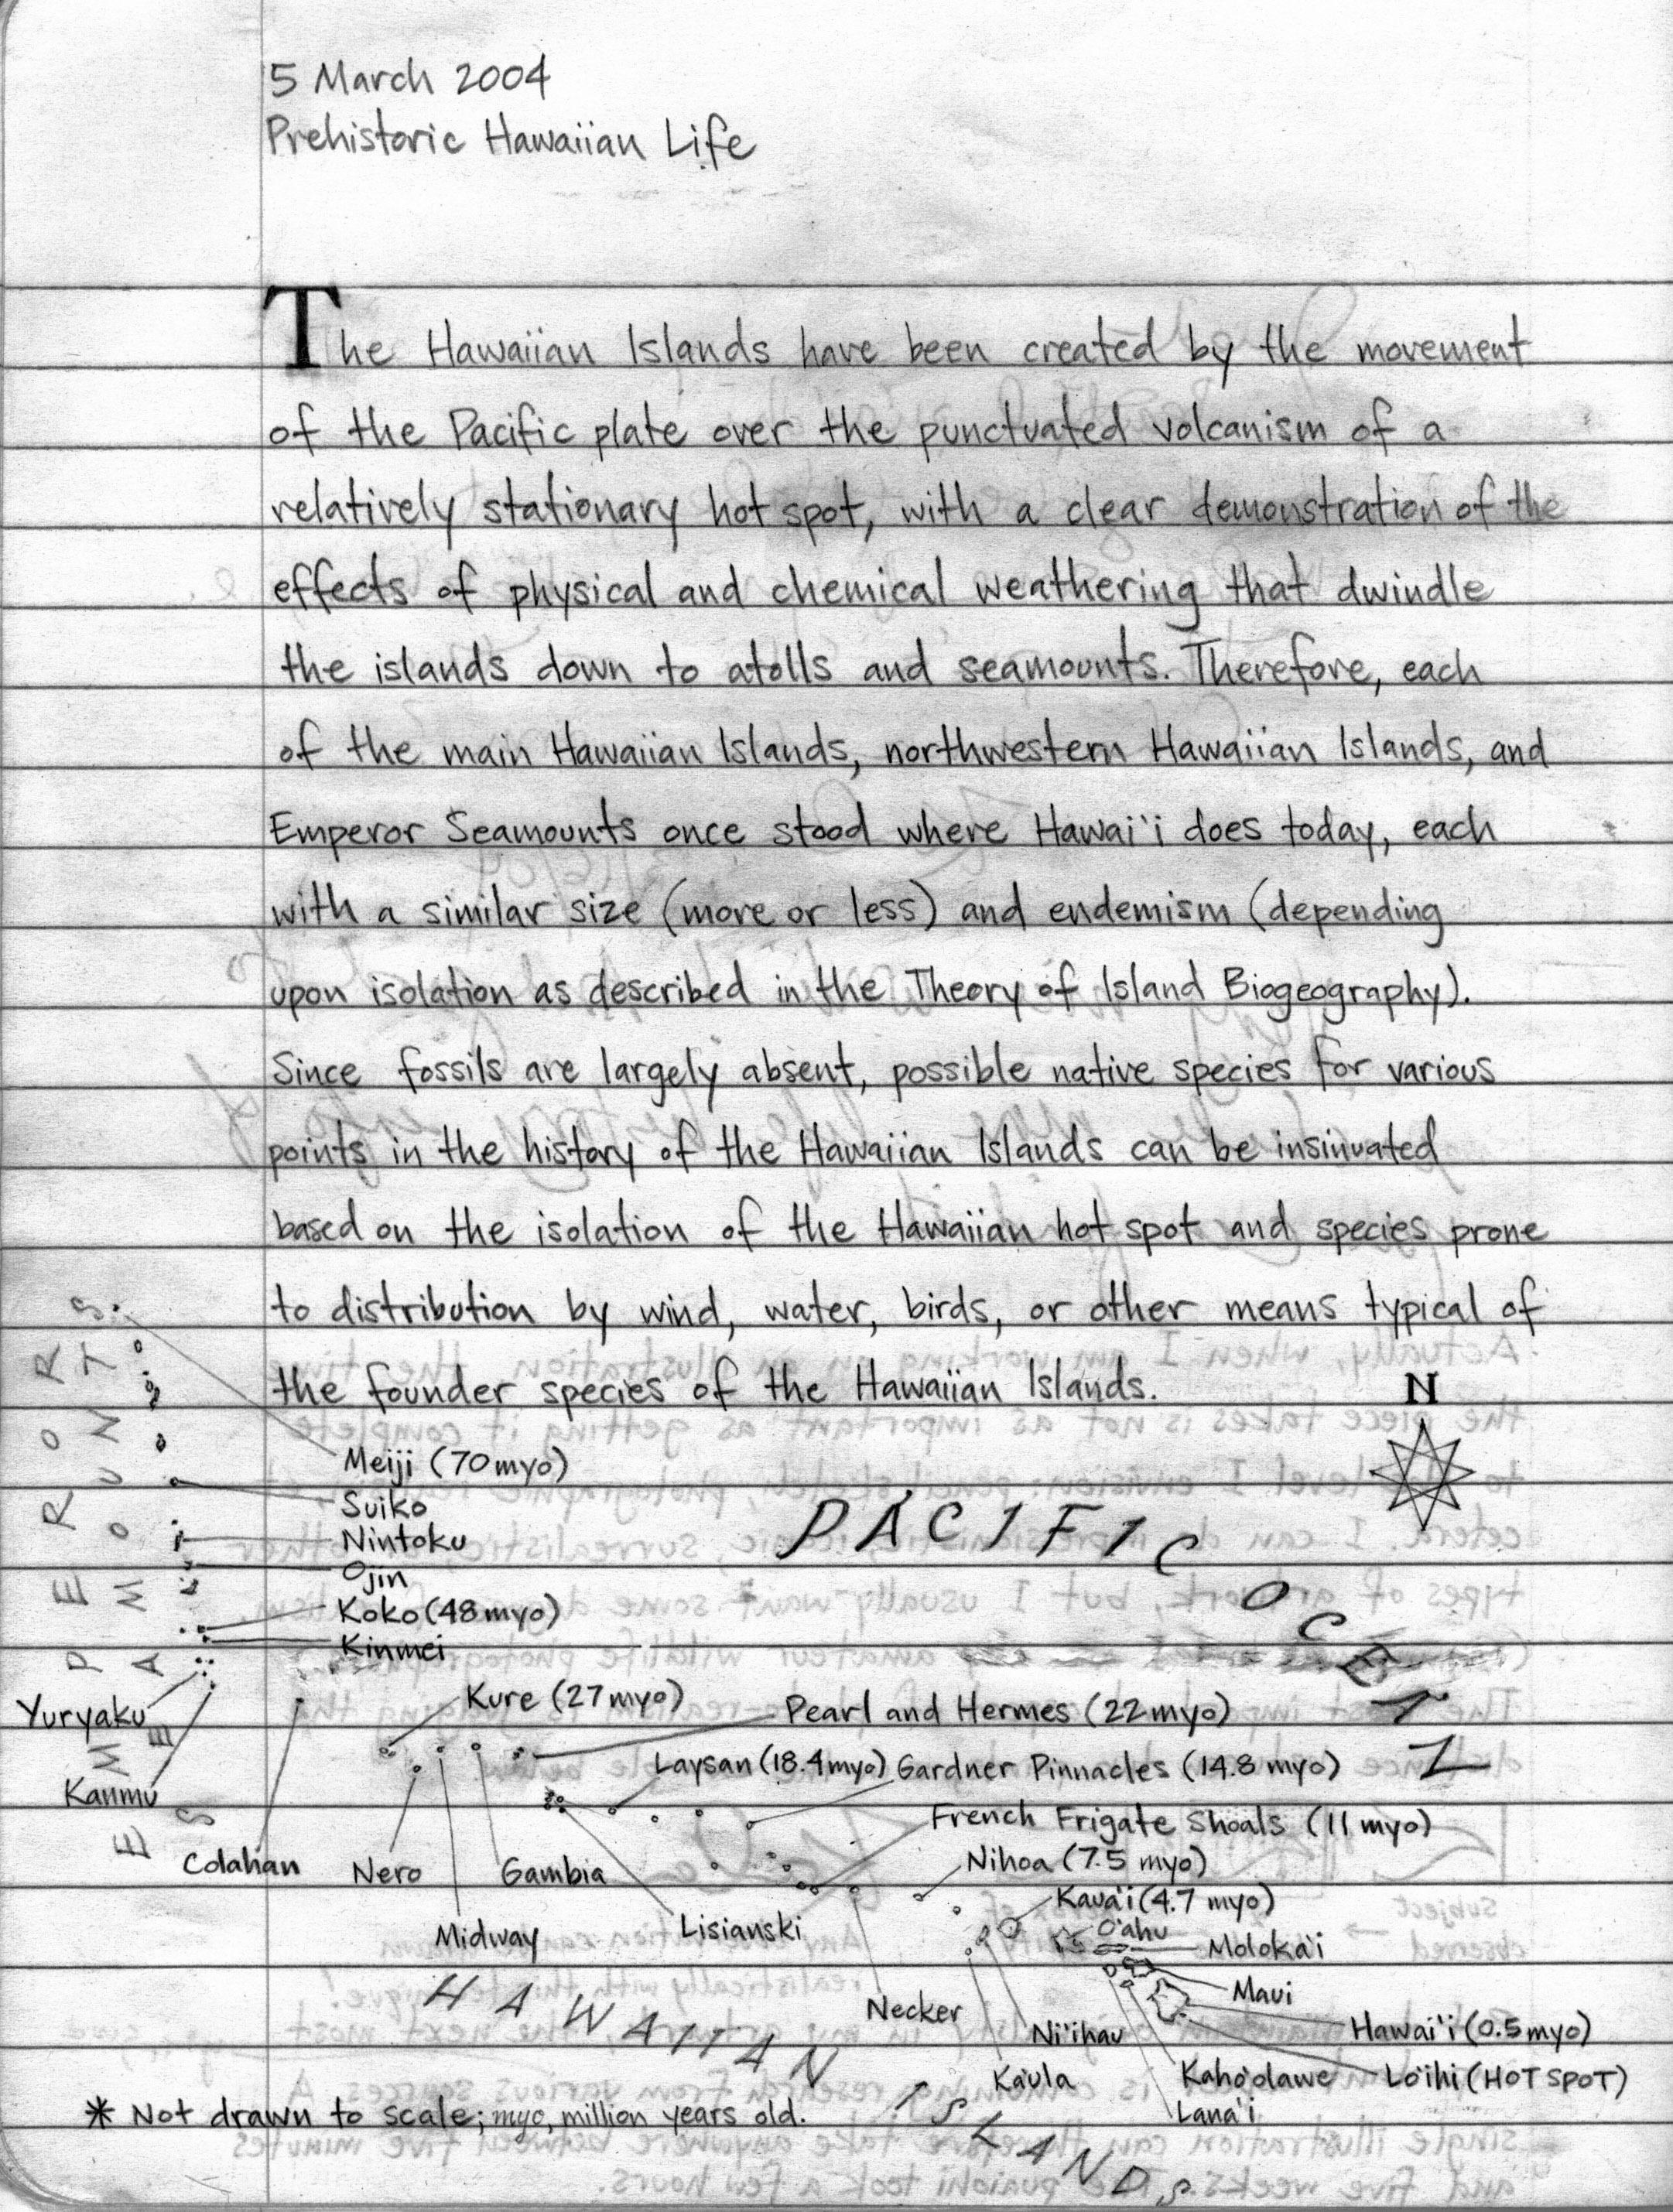 5 March 2004
Prehistoric Hawaiian Life
The Hawaiian Islands have been created by the movement
of the Pacific plate over the punctuated volcanism of a
relatively stationary hot spot, with a clear demonstration of the
effects of physical and chemical weathering that dwindle
the islands down to atolls and seamounts. Therefore, each
of the main Hawaiian Islands, northwestern Hawaiian Islands, and
Emperor Seamounts once stood where Hawai'i does today, each
with a similar size (more or less) and endemism (depending
upon isolation as described in the Theory of Island Biogeography).
Since fossils are largely absent, possible native species for various
points in the history of the Hawaiian Islands can be insinuated
based on the isolation of the Hawaiian hot spot and species prone
to distribution by wind, water, birds, or other means typical of
the founder species of the Hawaiian Islands.
N
EMPEROR
SEAMOUNTS
Meiji (70 myo)
Suiko
Nintoku
Ojin
Koko (48 myo)
Kinmei
PACIFIC OCEAN
Yuryaku
Kanmu
Kure (27 myo)
Pearl and Hermes (22 myo)
Laysan (18.4 myo)
Gardner Pinnacles (14.8 myo)
French Frigate Shoals (11 myo)
Colahan
Nero
Gambia
Nihoa (7.5 myo)
Kaua'i (4.7 myo)
Midway
Lisianski
O'ahu
Moloka'i
Maui
Necker
Ni'ihau
Hawai'i (0.5 myo)
Ka'ula
Kaho'olawe
Lo'ihi (HOT SPOT)
Lana'i
HAWAIIAN ISLANDS
* Not drawn to scale; myo, million years old.